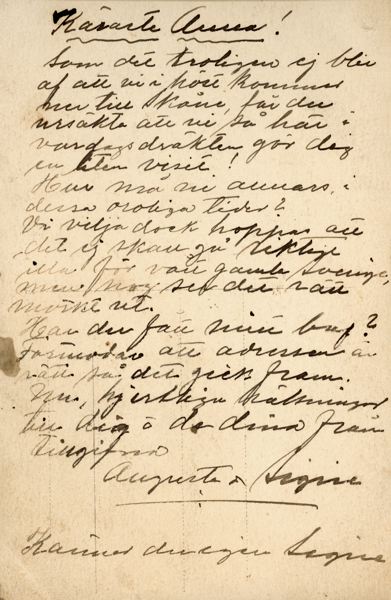 Käraste Anna!
Som det troligen ej blir
af att vi i höst kommer
ner till Skåne, får du
ursäkta att vi så här i
vardagsdräkten gör dig
en liten visit!
Hur må ni annars, i
dessa oroliga tider?
Vi vilja dock hoppas att
det ej skall gå riktigt
illa för vårt gamla Sverige,
men nog ser det rätt
mörkt ut.
Har du fått mitt bref?
Förmodar att adressen är
rätt så det gick fram.
Nu, hjertliga hälsningar
till dig o de dina från
tillgifna
Augusta & Signe
Känner du igen Signe